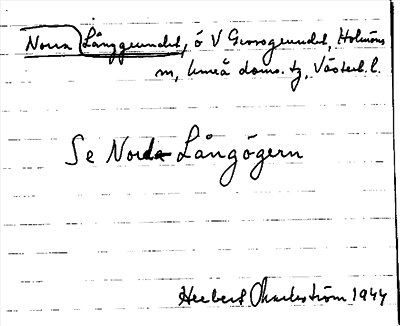 Norra Långgrundet, ö V Grossgrundet, Holmöns
sn, Umeå doms. tg, Västerb. l.
Se Norda Långögern
Herbert Markström 1944